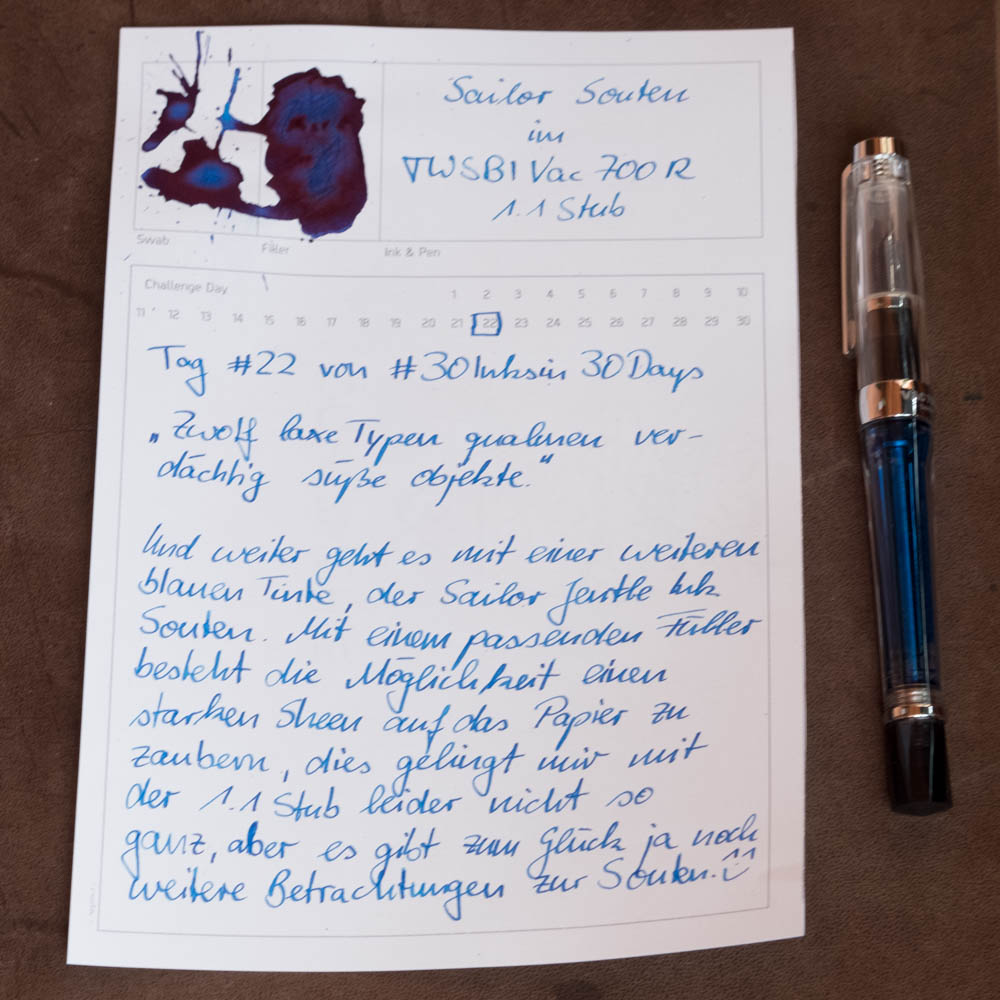 Sailor Souten
im
TWSBI Vac 700 R
1.1 Stub
Swab
Filler
Ink & Pen
Challenge Day
1 2 3 4 5 6 7 8 9 10
11 12 13 14 15 16 17 18 19 20 21 22 23 24 25 26 27 28 29 30
Tag #22 von #30Inksin30Days
„Zwölf laxe Typen qualmen ver-
dächtig süße objekte.“
Und weiter geht es mit einer weiteren
blauen Tinte, der Sailor Jentle Ink
Souten. Mit einem passenden Füller
besteht die Möglichkeit einen
starken Sheen auf das Papier zu
zaubern, dies gelingt mir mit
der 1.1 Stub leider nicht so
ganz, aber es gibt zum Glück ja noch
weitere Betrachtungen zur Souten.